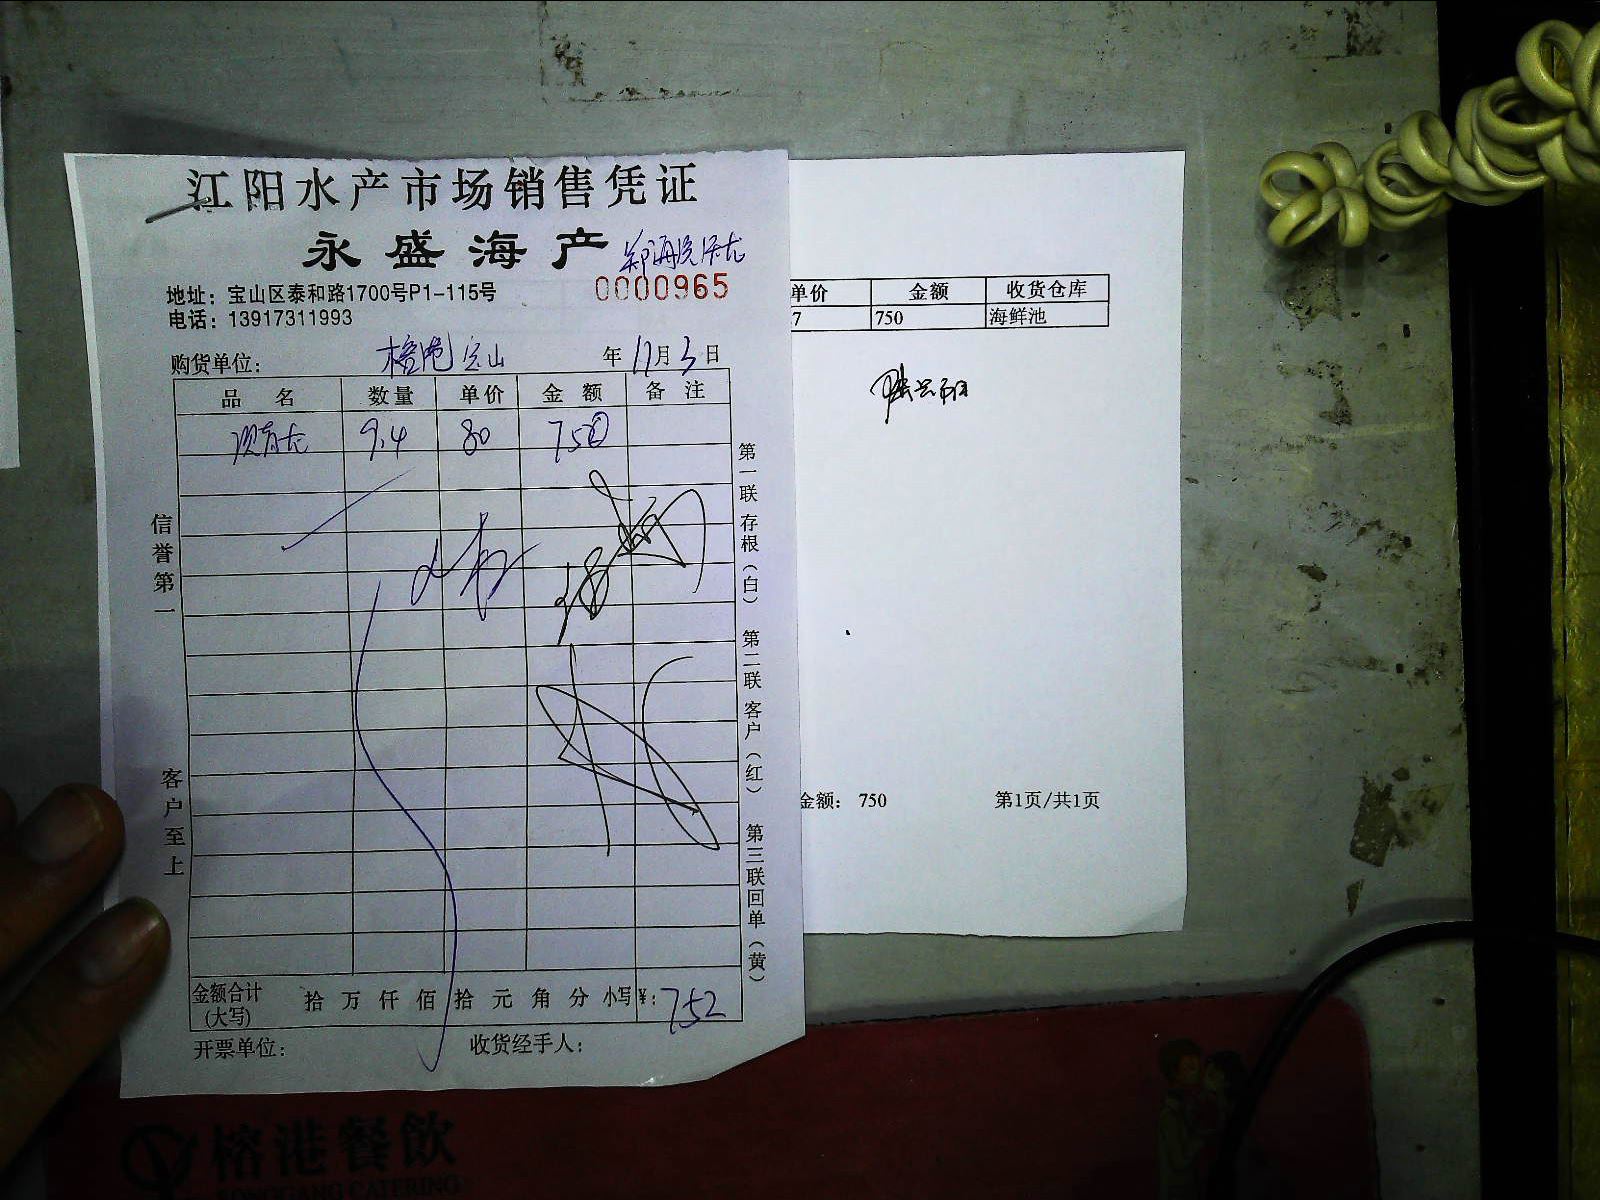 江阳水产市场销售凭证
永盛海产
0000965
地址：宝山区泰和路1700号P1-115号
电话：13917311993
购货单位： 榕港宝山 年 11月3日
品名 数量 单价 金额 备注
9.4 80 750
信誉第一
客户至上
第一联 存根（白） 第二联 客户（红） 第三联 回单（黄）
金额合计（大写） 拾 万 仟 佰 拾 元 角 分 小写￥：752
开票单位： 收货经手人：
单价 金额 收货仓库
7 750 海鲜池
金额： 750 第1页/共1页
榕港餐飲
RONGGANG CATERING